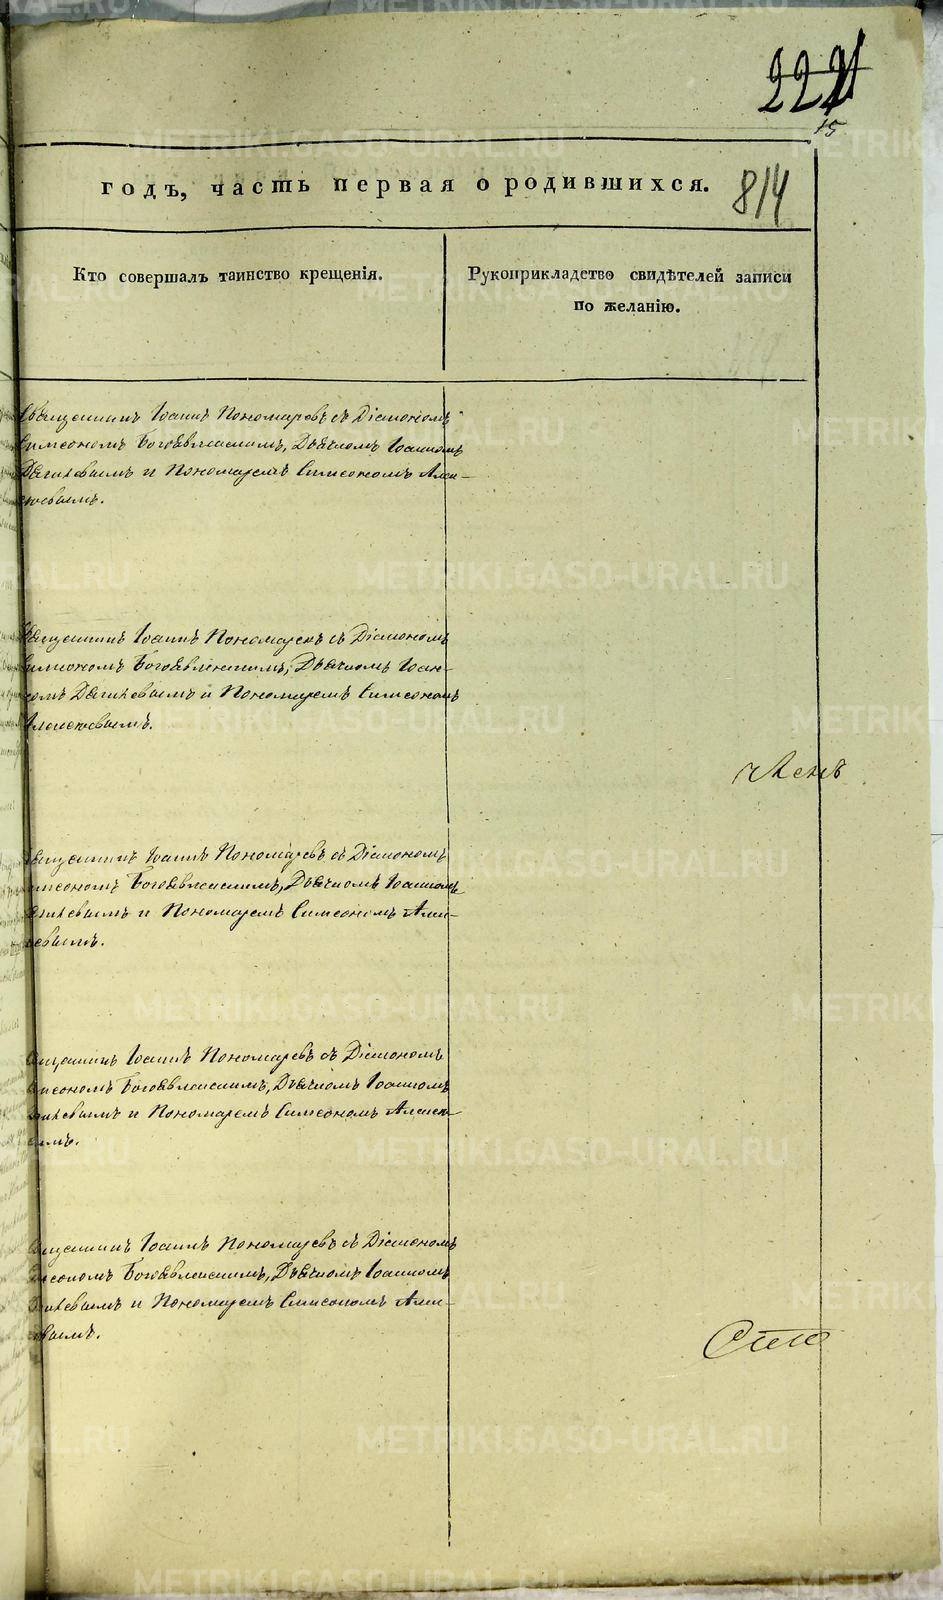 221
15
годъ, часть первая о родившихся.
814
Кто совершалъ таинство крещенія.
Рукоприкладство свидѣтелей записи
по желанію.
Священникъ Іоаннъ Пономаревъ съ Діакономъ
Симеономъ Богоявленскимъ, Дьячкомъ Іоанномъ
и Пономаремъ Симеономъ Алек-
сѣевымъ.
Священникъ Іоаннъ Пономаревъ съ Діакономъ
Симеономъ Богоявленскимъ, Дьячкомъ Іоан-
номъ и Пономаремъ Симеономъ
Алексѣевымъ.
Священникъ Іоаннъ Пономаревъ съ Діакономъ
Симеономъ Богоявленскимъ, Дьячкомъ Іоанномъ
и Пономаремъ Симеономъ Алек-
сѣевымъ.
Священникъ Іоаннъ Пономаревъ съ Діакономъ
Симеономъ Богоявленскимъ, Дьячкомъ Іоанномъ
и Пономаремъ Симеономъ Алексѣ-
евымъ.
Священникъ Іоаннъ Пономаревъ съ Діакономъ
Симеономъ Богоявленскимъ, Дьячкомъ Іоанномъ
и Пономаремъ Симеономъ Алек-
сѣевымъ.
METRIKI.GASO-URAL.RU